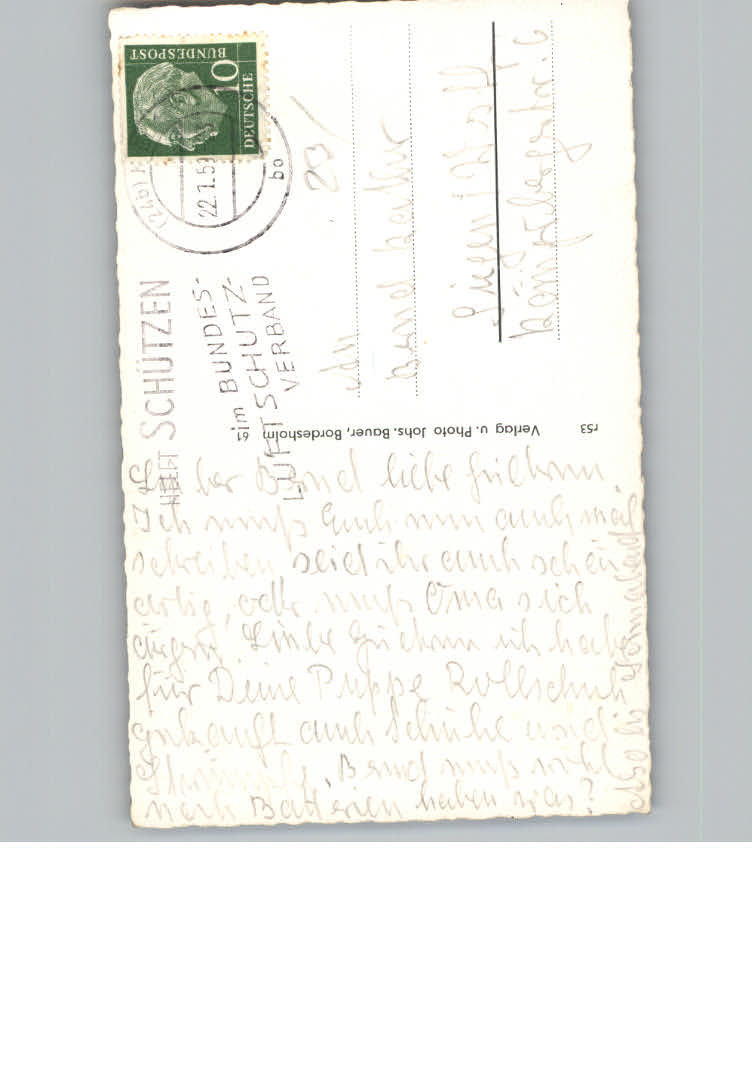 DEUTSCHE
BUNDESPOST
10
22.7.59
bo
HELFT SCHÜTZEN
im BUNDES-
LUFTSCHUTZ-
VERBAND
23
An
Bernd
Königsbergerstr. 6
r53
Verlag u. Photo Johs. Bauer, Bordesholm
61
Lieber Bernd liebe
Ich muß Euch nun auch mal
schreiben seid ihr auch schön
artig, oder muß Oma sich
ärgern. Liebe ich habe
für Deine Puppe Rollschuh
gekauft auch Schuhe und
Strümpfe, Bernd muß wohl
noch Batterien haben was?
Also bis Sonnabend